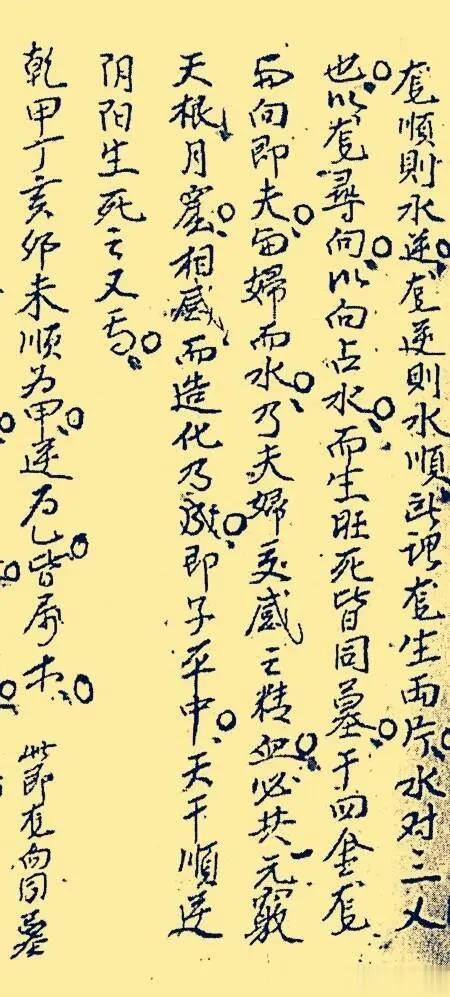 龙順則水逆龙逆則水順此謂龙生兩片水对三叉
也以龙尋向以向占水而生旺死皆同墓于四金龙
与向即夫与婦而水乃夫婦交感之精血必共元竅
天根月窟相感而造化乃成即子平中天干順逆
阴阳生死之义焉
乾甲丁亥卯未順为甲逆为乙皆属木 此即龙向同墓